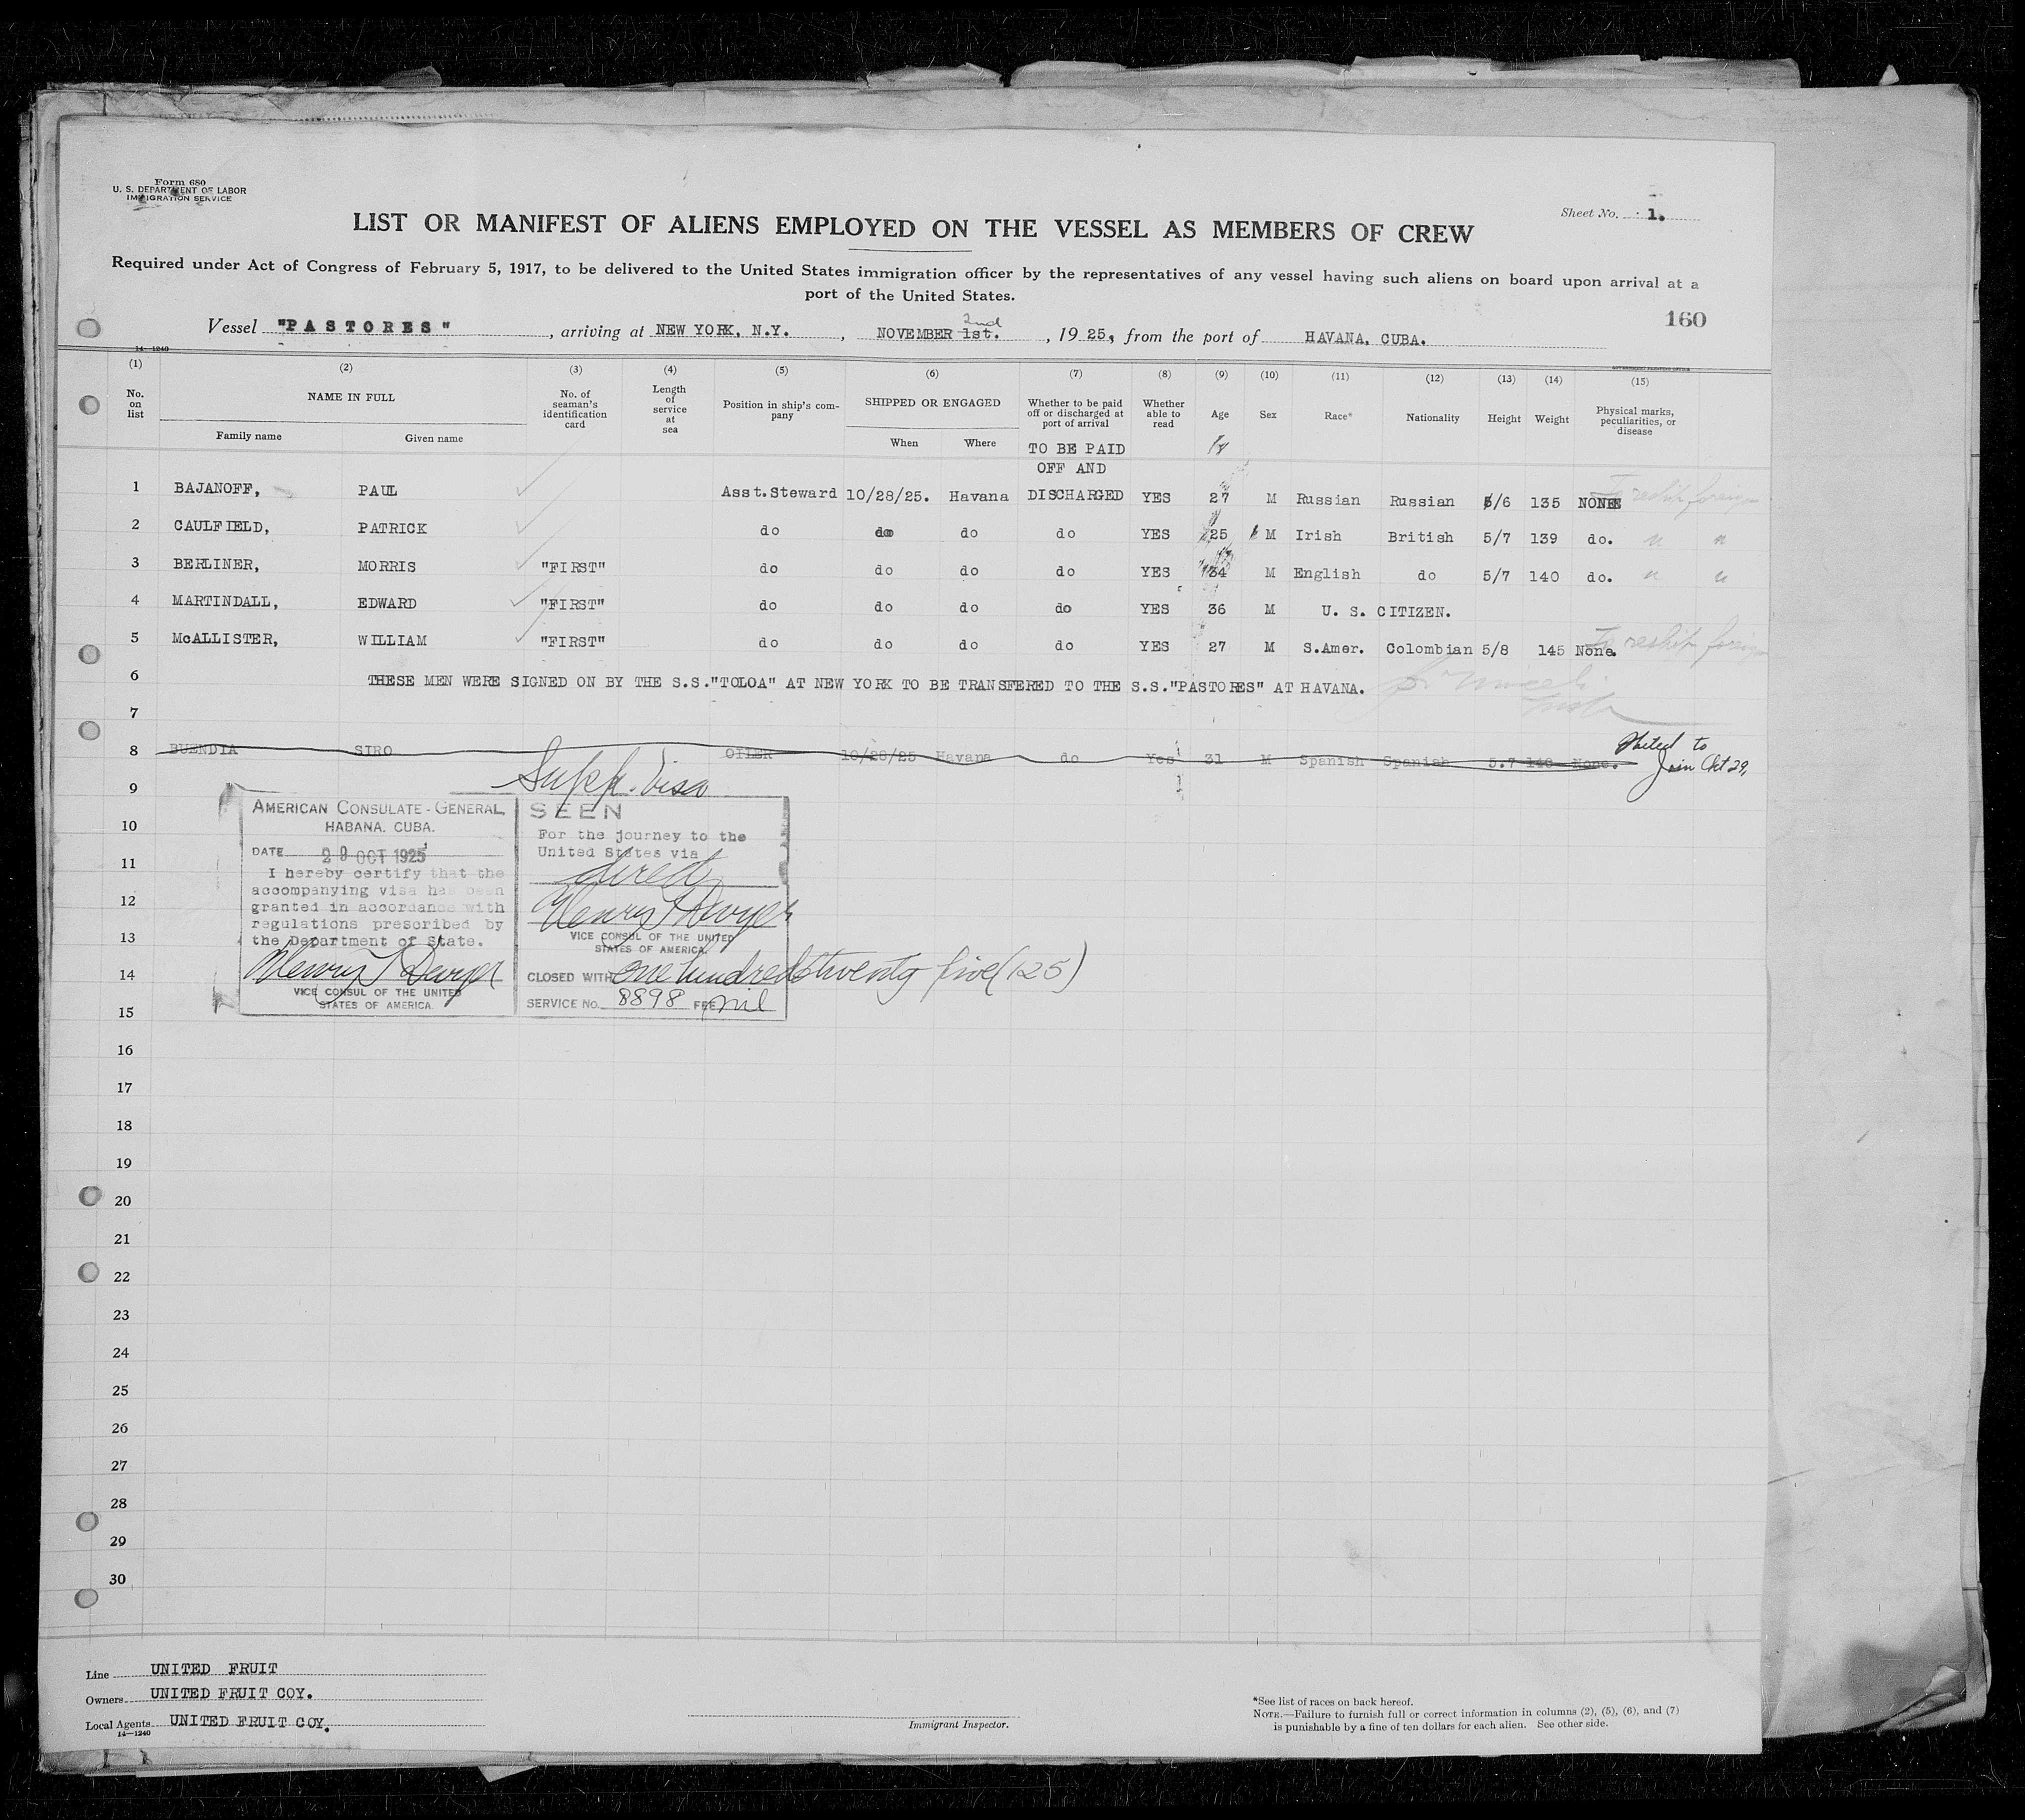 Form 680
U. S. DEPARTMENT OF LABOR
IMMIGRATION SERVICE
Sheet No. 1.
LIST OR MANIFEST OF ALIENS EMPLOYED ON THE VESSEL AS MEMBERS OF CREW
Required under Act of Congress of February 5, 1917, to be delivered to the United States immigration officer by the representatives of any vessel having such aliens on board upon arrival at a
port of the United States.
160
2nd
Vessel "PASTORES", arriving at NEW YORK, N.Y., NOVEMBER 1st., 1925, from the port of HAVANA, CUBA.
14—1240
(1) (2) (3) (4) (5) (6) (7) (8) (9) (10) (11) (12) (13) (14) (15)
No. on list NAME IN FULL No. of seaman's identification card Length of service at sea Position in ship's company SHIPPED OR ENGAGED Whether to be paid off or discharged at port of arrival Whether able to read Age Sex Race* Nationality Height Weight Physical marks, peculiarities, or disease
Family name Given name When Where
TO BE PAID
OFF AND
1 BAJANOFF, PAUL Asst.Steward 10/28/25. Havana DISCHARGED YES 27 M Russian Russian 5/6 135 NONE To reship foreign
2 CAULFIELD, PATRICK do do do do YES 25 M Irish British 5/7 139 do. " "
3 BERLINER, MORRIS "FIRST" do do do do YES 34 M English do 5/7 140 do. " "
4 MARTINDALL, EDWARD "FIRST" do do do do YES 36 M U. S. CITIZEN.
5 McALLISTER, WILLIAM "FIRST" do do do do YES 27 M S.Amer. Colombian 5/8 145 None. To reship foreign
6 THESE MEN WERE SIGNED ON BY THE S.S."TOLOA" AT NEW YORK TO BE TRANSFERED TO THE S.S."PASTORES" AT HAVANA.
7
8 BUENDIA SIRO OILER 10/28/25 Havana do Yes 31 M Spanish Spanish 5.7 140 None. to
Join Oct 29,
Supp. Visa
9
10
11
12
13
14
15
AMERICAN CONSULATE-GENERAL,
HABANA. CUBA.
DATE 29 OCT 1925
I hereby certify that the
accompanying visa has been
granted in accordance with
regulations prescribed by
the Department of State.
Henry T Dwyer
VICE CONSUL OF THE UNITED
STATES OF AMERICA.
SEEN
For the journey to the
United States via
direct
Henry T Dwyer
VICE CONSUL OF THE UNITED
STATES OF AMERICA.
CLOSED WITH one hundred twenty five (125)
SERVICE No. 8898 FEE nil
16
17
18
19
20
21
22
23
24
25
26
27
28
29
30
Line UNITED FRUIT
Owners UNITED FRUIT COY.
Local Agents UNITED FRUIT COY.
14—1240
Immigrant Inspector.
*See list of races on back hereof.
NOTE.—Failure to furnish full or correct information in columns (2), (5), (6), and (7)
is punishable by a fine of ten dollars for each alien. See other side.